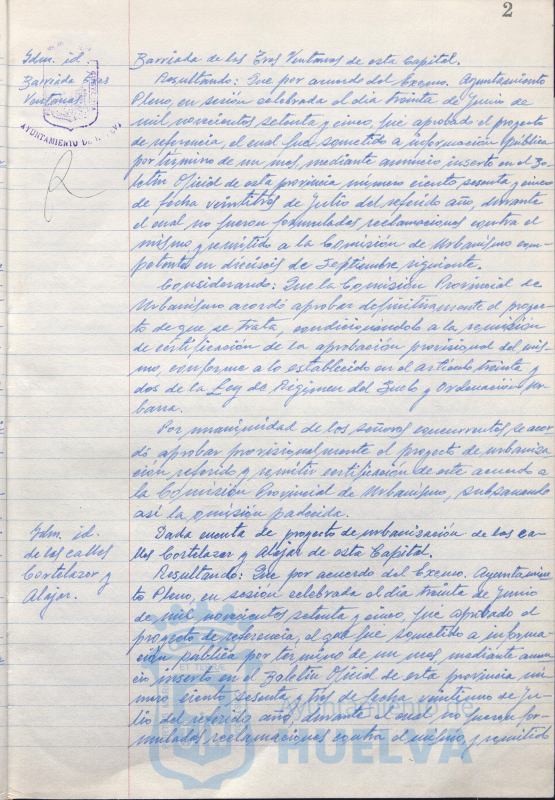 2
Idm. id.
Barriada Tres
Ventanas
AYUNTAMIENTO DE HUELVA
Barriada de las Tres Ventanas de esta Capital.
Resultando: Que por acuerdo del Excmo. Ayuntamiento
Pleno, en sesión celebrada el día treinta de Junio de
mil novecientos setenta y cinco, fué aprobado el proyecto
de referencia, el cual fue sometido a información pública
por término de un mes, mediante anuncio inserto en el Bo-
letín Oficial de esta provincia número ciento sesenta y cinco
de fecha veintitres de Julio del referido año, durante
el cual no fueron formuladas reclamaciones contra el
mismo y remitido a la Comisión de Urbanismo com-
petente en dieciseis de Septiembre siguiente.
Considerando: Que la Comisión Provincial de
Urbanismo acordó aprobar definitivamente el proyec-
to de que se trata, condicionándolo a la remisión
de certificación de la aprobación provisional del mis-
mo, conforme a lo establecido en el artículo treinta y
dos de la Ley de Régimen del Suelo y Ordenación ur-
bana.
Por unanimidad de los señores concurrentes se acor-
dó aprobar provisionalmente el proyecto de urbaniza-
ción referido y remitir certificación de este acuerdo a
la Comisión Provincial de Urbanismo, subsanando
así la omisión padecida.
Idm. id.
de las calles
Cortelazor y
Alajar.
Dada cuenta de proyecto de urbanización de las ca-
lles Cortelazor y Alajar de esta Capital.
Resultando: Que por acuerdo del Excmo. Ayuntamien-
to Pleno, en sesión celebrada el día treinta de Junio
de mil novecientos setenta y cinco, fué aprobado el
proyecto de referencia, el cual fue sometido a informa-
ción pública por término de un mes, mediante anun-
cio inserto en el Boletín Oficial de esta provincia nú-
mero ciento sesenta y tres de fecha veintiuno de Ju-
lio del referido año, durante el cual no fueron for-
muladas reclamaciones contra el mismo, y remitido
Ayuntamiento de
HUELVA